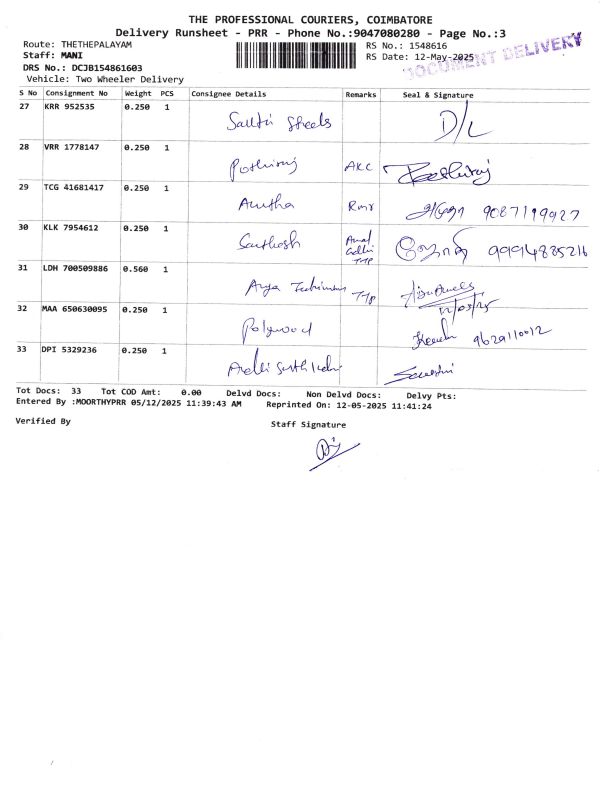 THE PROFESSIONAL COURIERS, COIMBATORE
Delivery Runsheet - PRR - Phone No.:9047080280 - Page No.:3
Route: THETHEPALAYAM RS No.: 1548616
Staff: MANI RS Date: 12-May-2025
DRS No.: DCJB154861603 DOCUMENT DELIVERY
Vehicle: Two Wheeler Delivery
S No Consignment No Weight PCS Consignee Details Remarks Seal & Signature
27 KRR 952535 0.250 1
Steels D/L
28 VRR 1778147 0.250 1
Pothiraj AKC
29 TCG 41681417 0.250 1
Anitha 9087119927
30 KLK 7954612 0.250 1
Santhosh 9994885216
31 LDH 700509886 0.560 1
Arya TTP
12/05/25
32 MAA 650630095 0.250 1
Polywood 9629110012
33 DPI 5329236 0.250 1
Tot Docs: 33 Tot COD Amt: 0.00 Delvd Docs: Non Delvd Docs: Delvy Pts:
Entered By :MOORTHYPRR 05/12/2025 11:39:43 AM Reprinted On: 12-05-2025 11:41:24
Verified By Staff Signature